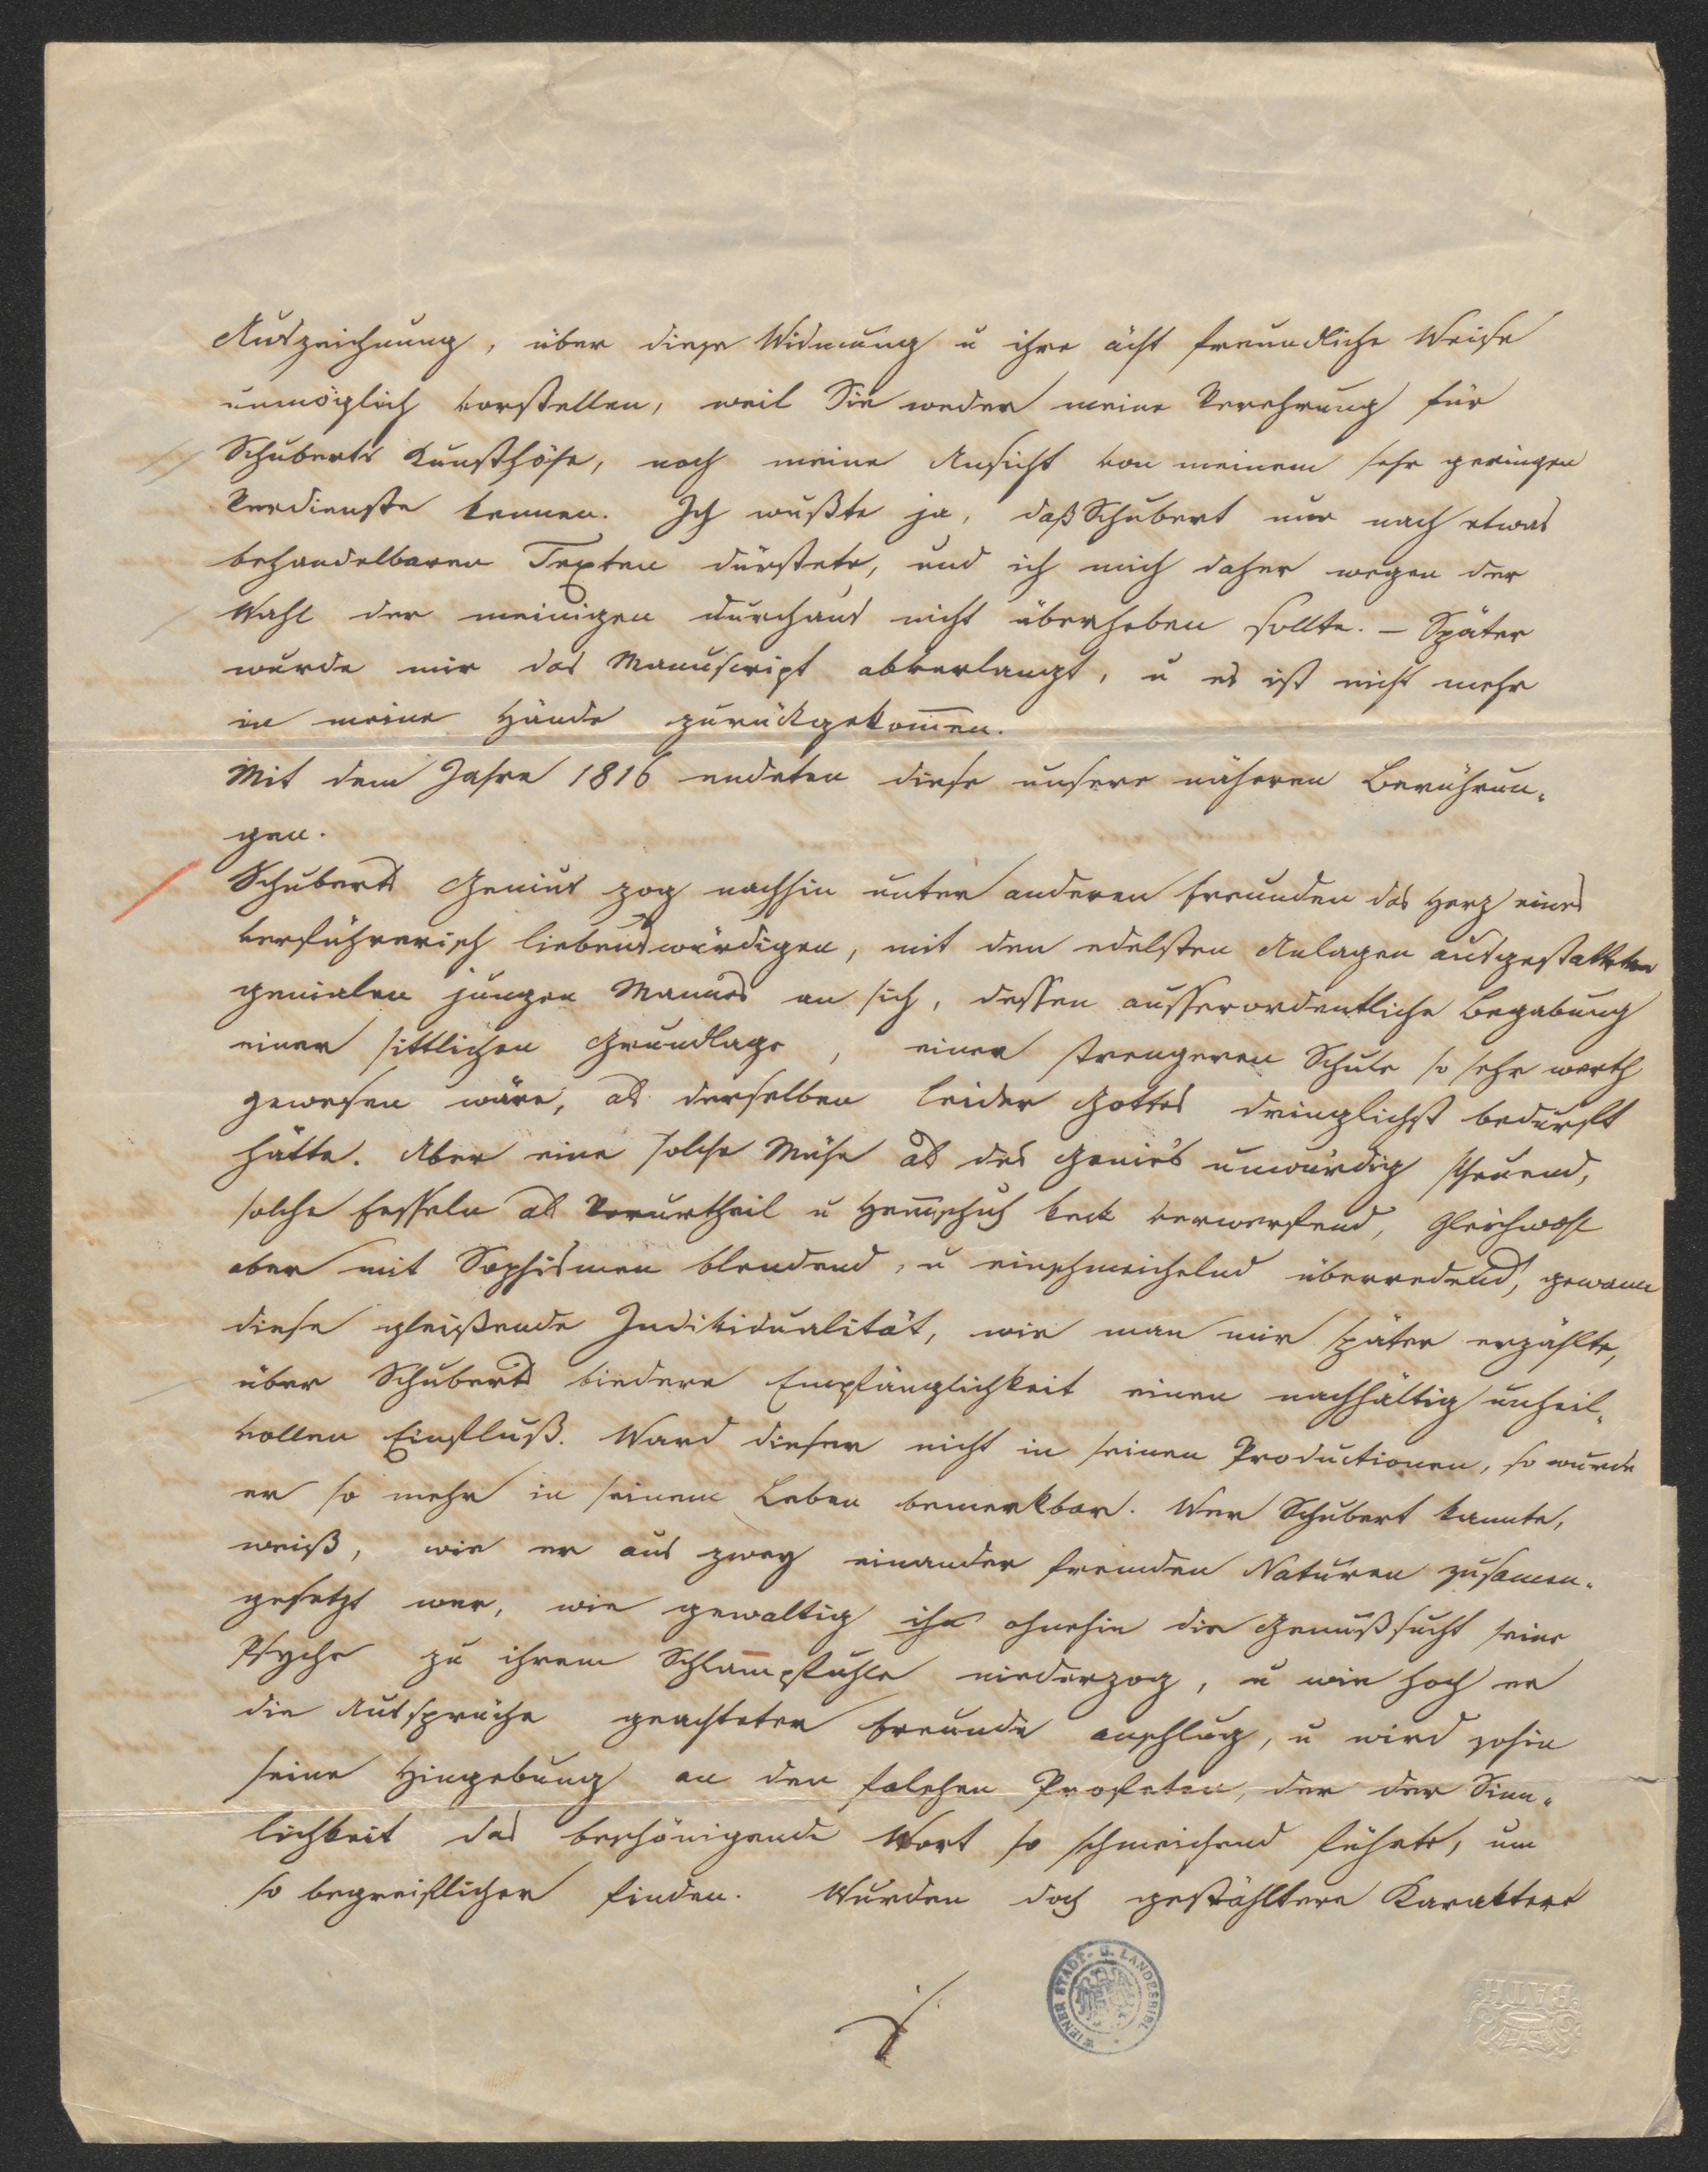 Auszeichnung, über diese Widmung u ihre ächt freundliche Weise
unmöglich vorstellen, weil Sie weder meine Verehrung für
Schuberts Kunsthöhe, noch meine Ansicht von meinem sehr geringen
Verdienste kennen. Ich wußte ja, daß Schubert nur nach etwas
behandelbaren Texten dürstete, und ich mich daher wegen der
Wahl der meinigen durchaus nicht überheben sollte. – Später
wurde mir das Manuscript abverlangt, u es ist nicht mehr
in meine Hände zurückgekom̅en.
Mit dem Jahre 1816 endeten diese unsere näheren Berührun„
gen.
Schuberts Genius zog nachhin unter anderen Freunden das Herz eines
verführerisch liebenswürdigen, mit den edelsten Anlagen ausgestatteten
genialen jungen Mannes an sich, dessen ausserordentliche Begabung
einer sittlichen Grundlage, einer strengeren Schule so sehr werth
gewesen wäre, als derselben leider Gottes dringlichst bedurft
hätte. Aber eine solche Mühe als des Genie's unwürdig scheuend,
solche Fesseln als Vorurtheil u Hem̅schuh keck verwerfend, gleichwohl
aber mit Sophismen blendend, u einschmeichelnd überredend, gewann
diese gleißende Individualität, wie man mir später erzählte,
über Schuberts biedere Empfänglichkeit einen nachhältig unheil„
vollen Einfluß. Ward dieser nicht in seinen Productionen, so wurde
er so mehr in seinem Leben bemerkbar. Wer Schubert kannte,
weiß, wie er aus zwey einander fremden Naturen zusamen„
gesetzt war, wie gewaltig ihn ohnehin die Genußsucht seine
Psyche zu ihrem Schlam̅pfuhle niederzog, u wie hoch er
die Aussprüche geachteter Freunde anschlug, u wird sohin
seine Hingebung an den falschen Profeten, der der Sinn„
lichkeit das beschönigende Wort so schmeichend führte, um
so begreiflicher finden. Wurden doch gestähltere Karaktere
WIENER STADT- U. LANDESBIBL.
BATH